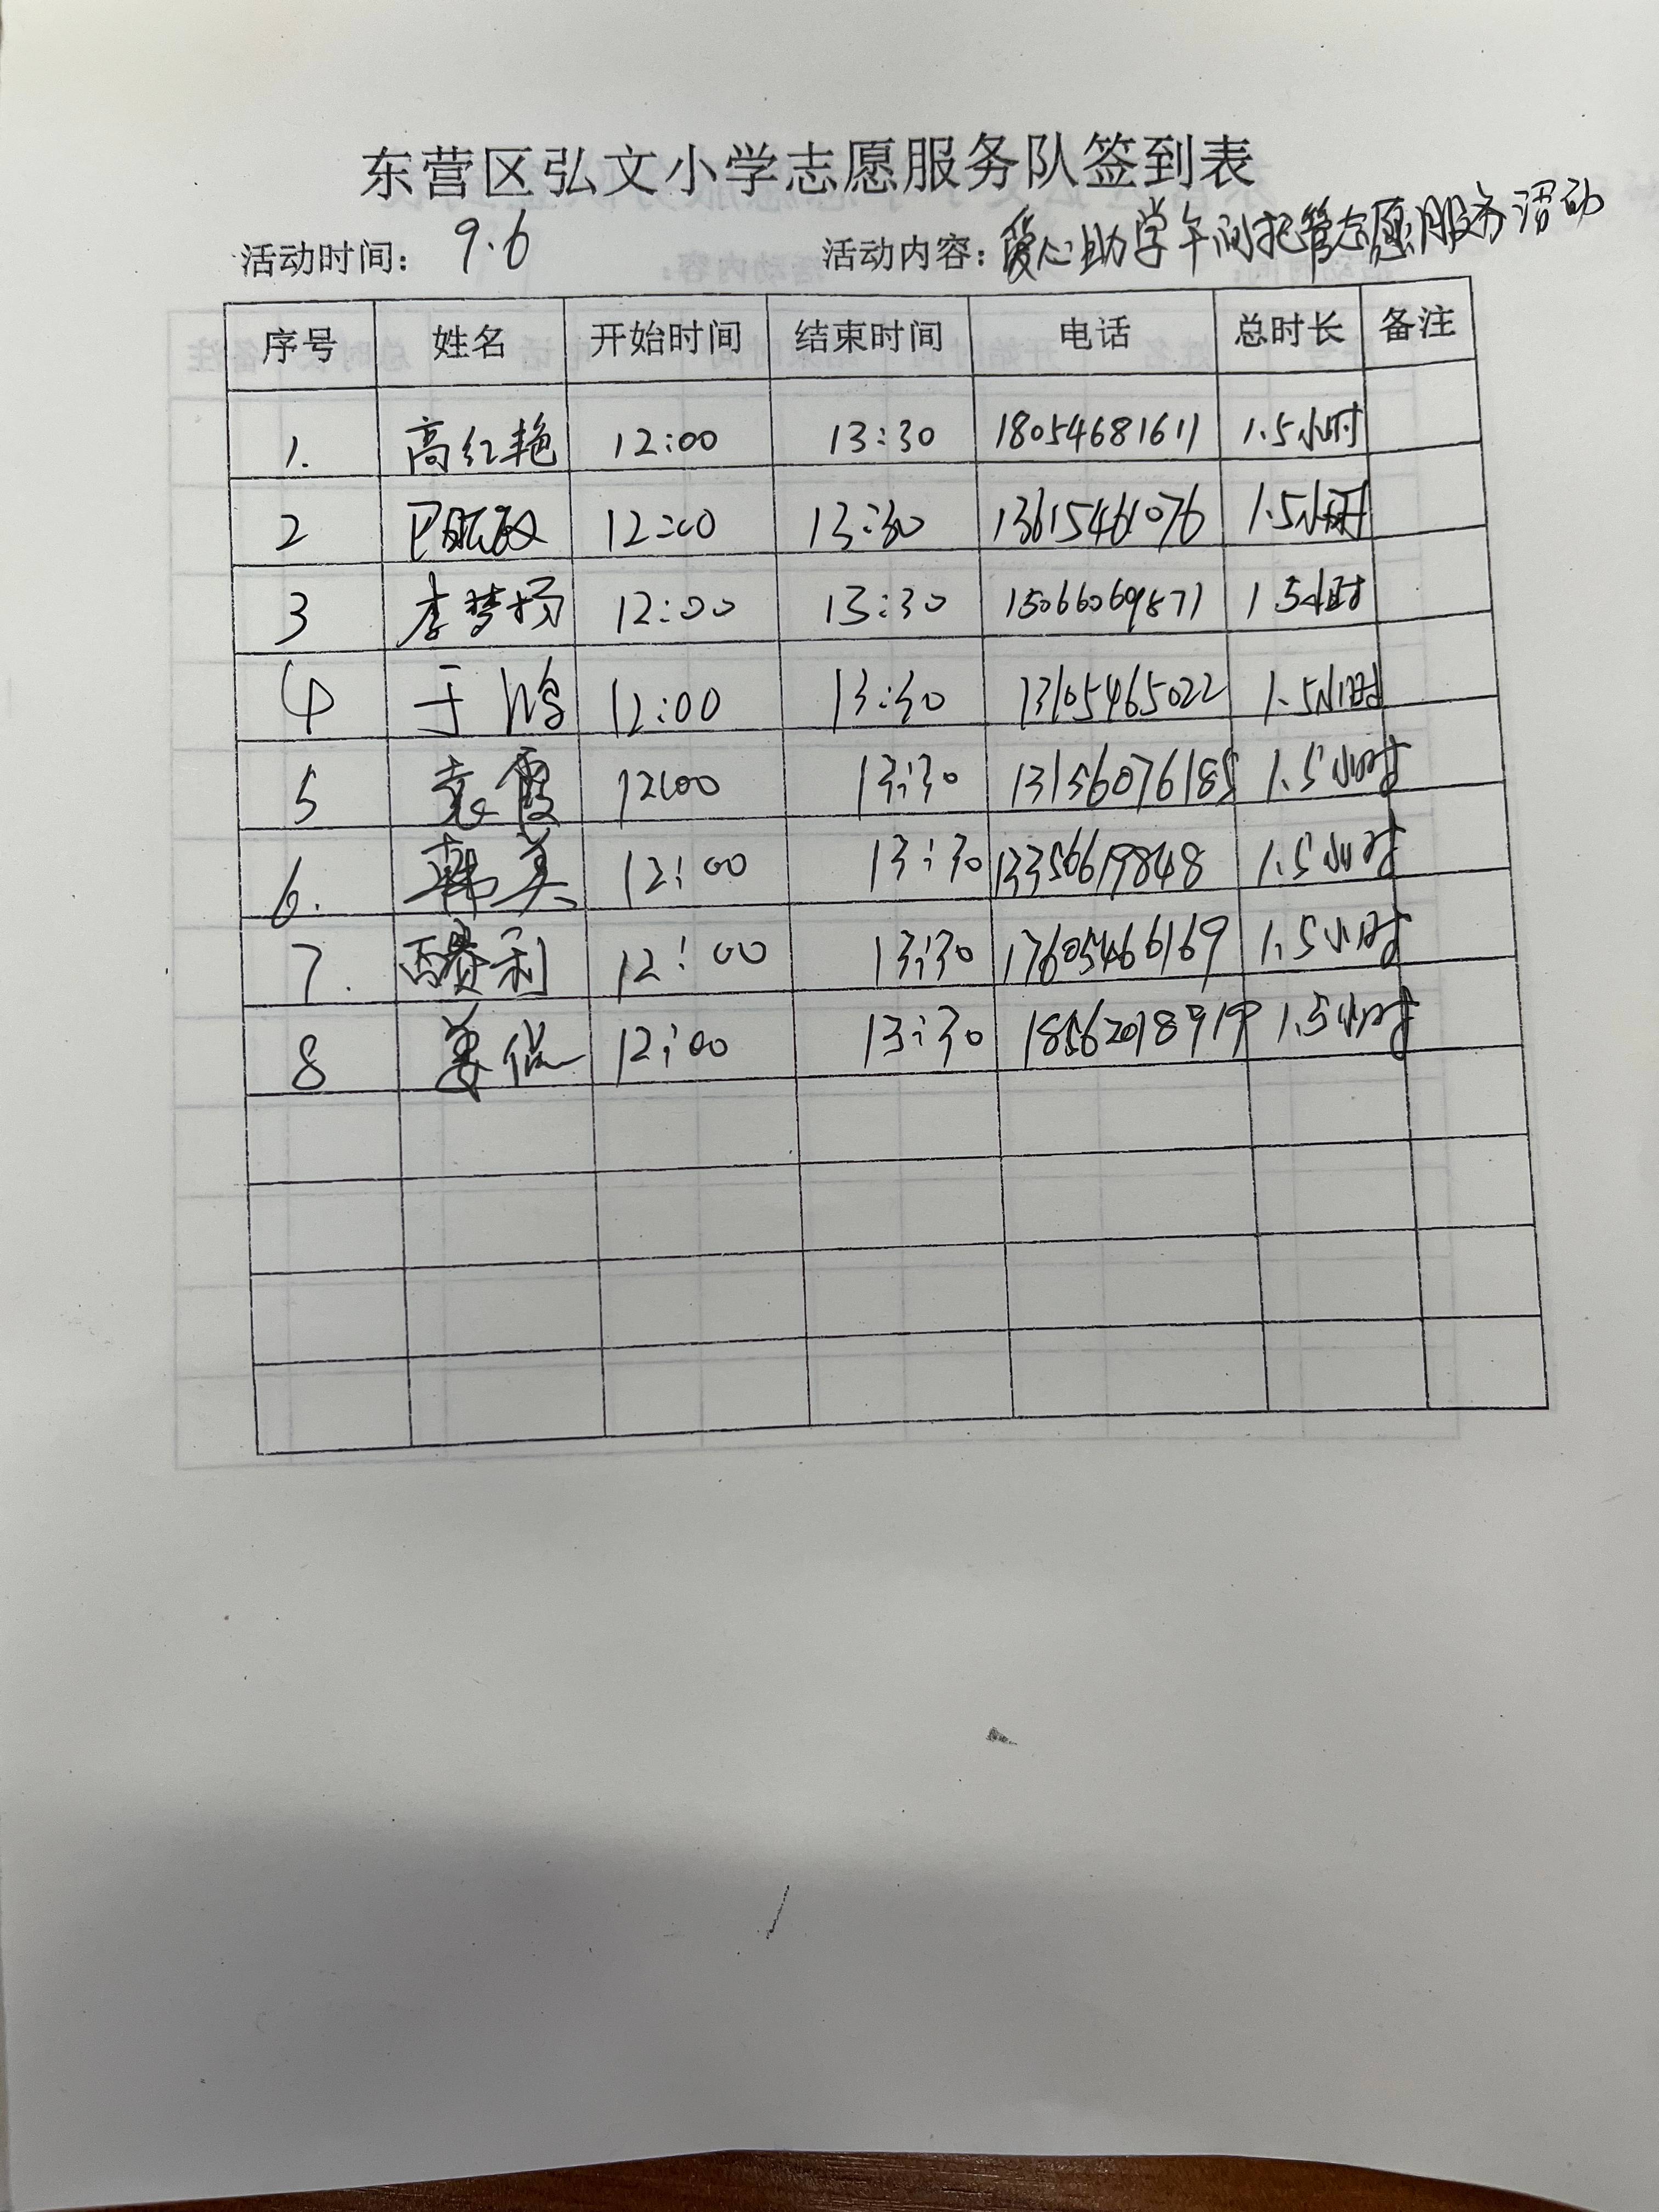 东营区弘文小学志愿服务队签到表
活动时间： 9.6 活动内容：爱心助学午间托管志愿服务活动
序号 姓名 开始时间 结束时间 电话 总时长 备注
1. 高红艳 12:00 13:30 18054681611 1.5小时
2 12:00 13:30 13615461076 1.5小时
3 李梦扬 12:00 13:30 15066069871 1.5小时
4 于鸿 12:00 13:30 13105465022 1.5小时
5 袁霞 12:00 13:30 13156076185 1.5小时
6. 韩美 12:00 13:30 13356619848 1.5小时
7. 12:00 13:30 17605466169 1.5小时
8 姜 12:00 13:30 18562018919 1.5小时